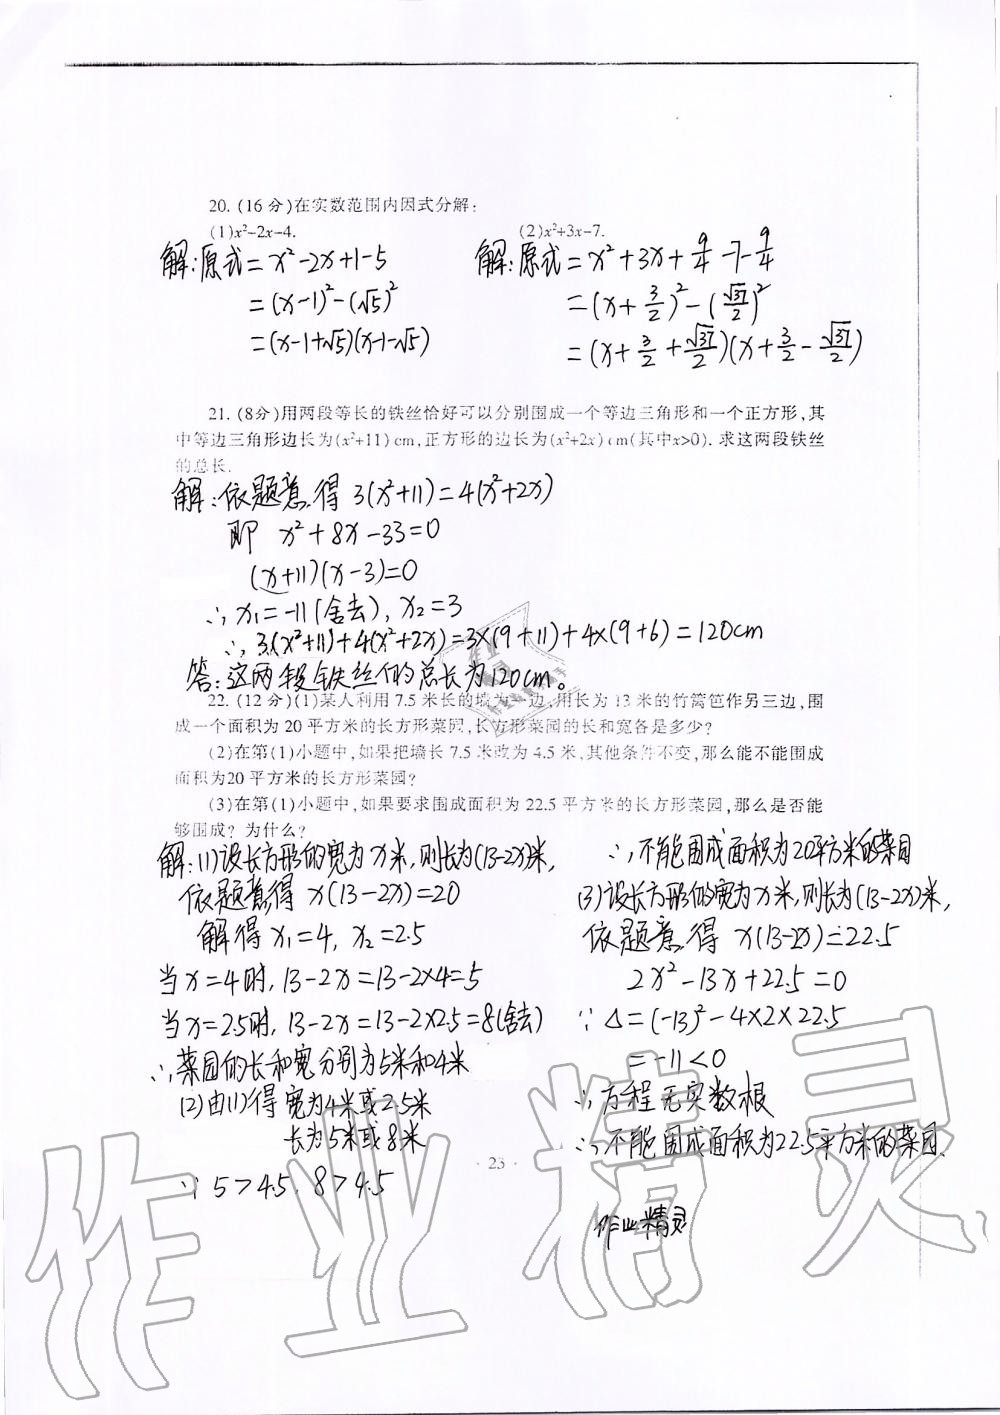 20. (16分)在实数范围内因式分解:
(1)x²-2x-4.
(2)x²+3x-7.
解:原式=x²-2x+1-5
=(x-1)²-(√5)²
=(x-1+√5)(x-1-√5)
解:原式=x²+3x+9/4-7-9/4
=(x+3/2)²-(√37/2)²
=(x+3/2+√37/2)(x+3/2-√37/2)
21. (8分)用两段等长的铁丝恰好可以分别围成一个等边三角形和一个正方形,其
中等边三角形边长为(x²+11) cm,正方形的边长为(x²+2x) cm(其中x>0). 求这两段铁丝
的总长.
解:依题意,得 3(x²+11)=4(x²+2x)
即 x²+8x-33=0
(x+11)(x-3)=0
∴x₁=-11(舍去), x₂=3
∴3(x²+11)+4(x²+2x)=3×(9+11)+4×(9+6)=120cm
答:这两段铁丝的总长为120cm。
22. (12分)(1)某人利用 7.5 米长的墙为一边,用长为 13 米的竹篱笆作另三边,围
成一个面积为 20 平方米的长方形菜园,长方形菜园的长和宽各是多少?
(2)在第(1)小题中,如果把墙长 7.5 米改为 4.5 米,其他条件不变,那么能不能围成
面积为20 平方米的长方形菜园?
(3)在第(1)小题中,如果要求围成面积为 22.5 平方米的长方形菜园,那么是否能
够围成? 为什么?
解:(1)设长方形的宽为x米,则长为(13-2x)米,
依题意得 x(13-2x)=20
解得 x₁=4, x₂=2.5
当x=4时, 13-2x=13-2×4=5
当x=2.5时, 13-2x=13-2×2.5=8(舍去)
∴菜园的长和宽分别为5米和4米
(2)由(1)得 宽为4米或2.5米
长为5米或8米
∵ 5>4.5, 8>4.5
∴不能围成面积为20平方米的菜园
(3)设长方形的宽为x米,则长为(13-2x)米,
依题意,得 x(13-2x)=22.5
2x²-13x+22.5=0
∵ Δ=(-13)²-4×2×22.5
=-11<0
∴方程无实数根
∴不能围成面积为22.5平方米的菜园.
· 23 ·
作业精灵
作业精灵